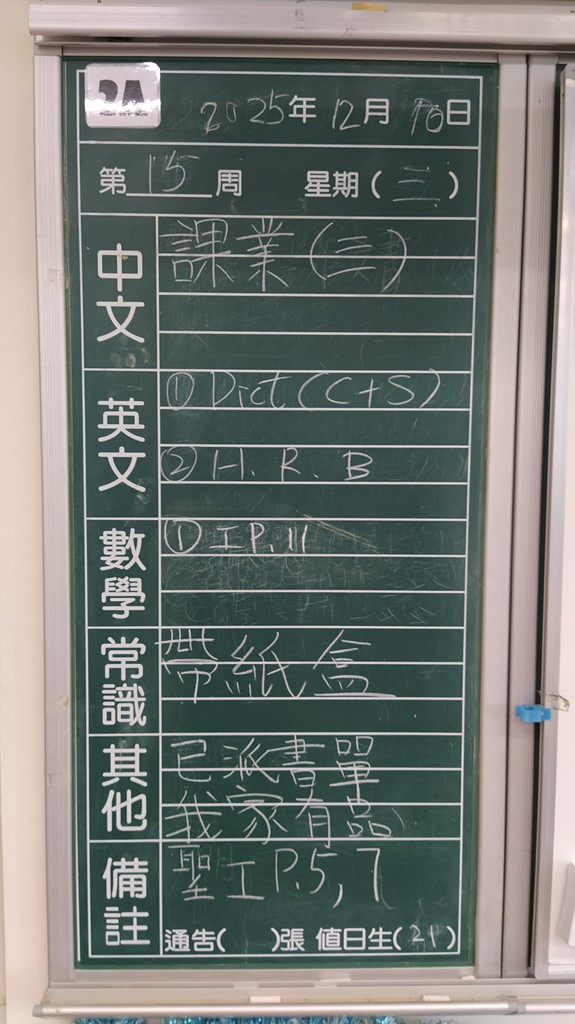 2A
2025年12月10日
第15周 星期(三)
中文 課業(三)
英文 ① Dict(C+S)
② H. R. B
數學 ① 工P.11
常識 帶紙盒
其他 已派書單
我家有品
備註 聖工P.5,7
通告( )張 值日生(21)